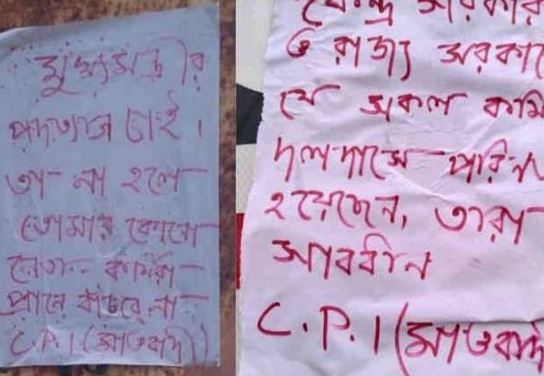 মুখ্যমন্ত্রীর
পদত্যাগ চাই।
তা না হলে
তোমার কোনো
নেতা- কর্মিরা
প্রানে বাঁচবে না
C.P.I (মাওবাদী)
কেন্দ্র সরকার
ও রাজ্য সরকারে
যে সকল কর্মি
দলদাসে পরিন
হয়েছেন, তারা
সাবধান
C.P.I (মাওবাদী